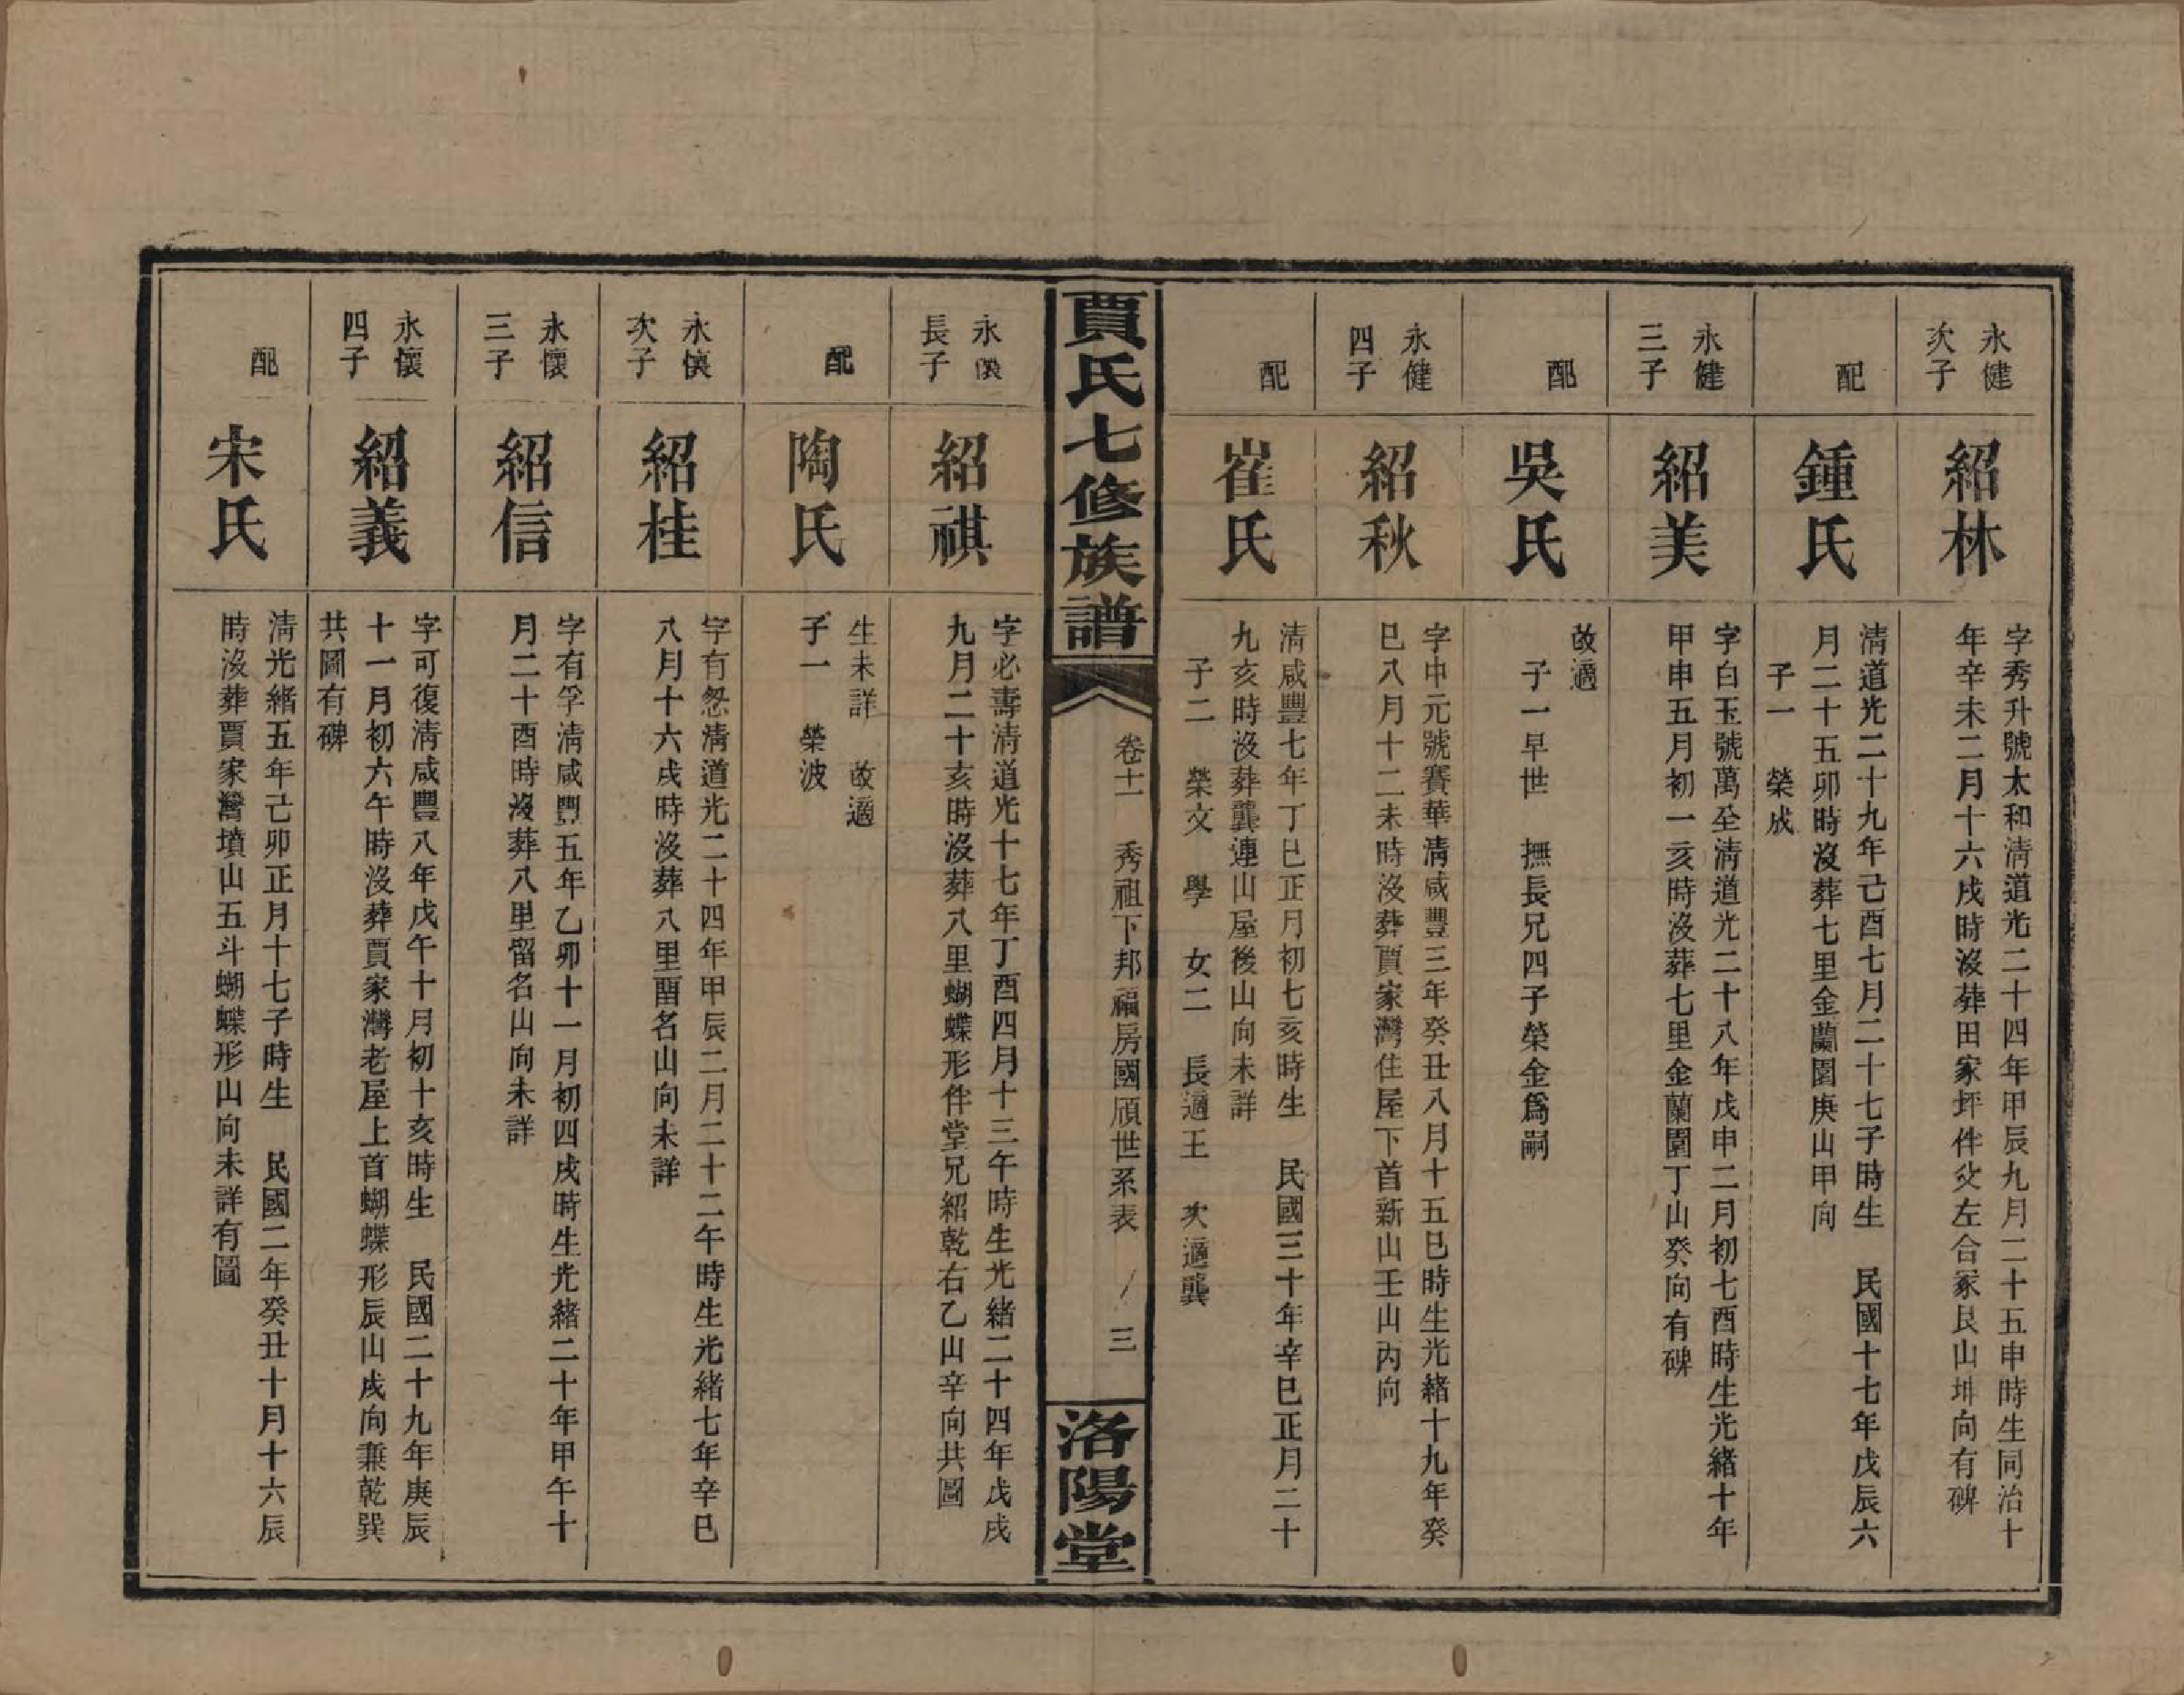 永健
次子
紹林
字秀升號太和清道光二十四年甲辰九月二十五申時生同治十
年辛未二月十六戌時沒葬田家坪伴父左合冢艮山坤向有碑
配
鍾氏
清道光二十九年己酉七月二十七子時生　民國十七年戊辰六
月二十五卯時沒葬七里金蘭園庚山甲向
子一　榮成
永健
三子
紹美
字白玉號萬至清道光二十八年戊申二月初七酉時生光緒十年
甲申五月初一亥時沒葬七里金蘭園丁山癸向有碑
配
吳氏
改適
子一早世　撫長兄四子榮金爲嗣
永健
四子
紹秋
字中元號賽華清咸豐三年癸丑八月十五巳時生光緒十九年癸
巳八月十二未時沒葬賈家灣住屋下首新山壬山丙向
配
崔氏
清咸豐七年丁巳正月初七亥時生　民國三十年辛巳正月二十
九亥時沒葬龔連山屋後山向未詳
子二　榮文　學　女二　長適王　次適龔
賈氏七修族譜
卷十一　秀祖下邦福房國頎世系表　三
洛陽堂
永懷
長子
紹祺
字必壽清道光十七年丁酉四月十三午時生光緒二十四年戊戌
九月二十亥時沒葬八里蝴蝶形伴堂兄紹乾右乙山辛向共圖
配
陶氏
生未詳　改適
子一　榮波
永懷
次子
紹桂
字有恕清道光二十四年甲辰二月二十二午時生光緒七年辛巳
八月十六戌時沒葬八里留名山向未詳
永懷
三子
紹信
字有孚清咸豐五年乙卯十一月初四戌時生光緒二十年甲午十
月二十酉時沒葬八里留名山向未詳
永懷
四子
紹義
字可復清咸豐八年戊午十月初十亥時生　民國二十九年庚辰
十一月初六午時沒葬賈家灣老屋上首蝴蝶形辰山戌向兼乾巽
共圖有碑
配
宋氏
清光緒五年己卯正月十七子時生　民國二年癸丑十月十六辰
時沒葬賈家灣墳山五斗蝴蝶形山向未詳有圖